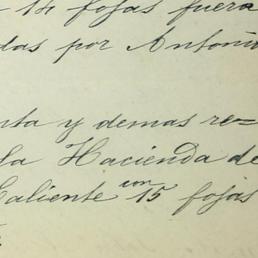 14 fojas fuera
das por Antoni
nta y demas re=
la Hacienda de
Caliente con 15 fojas